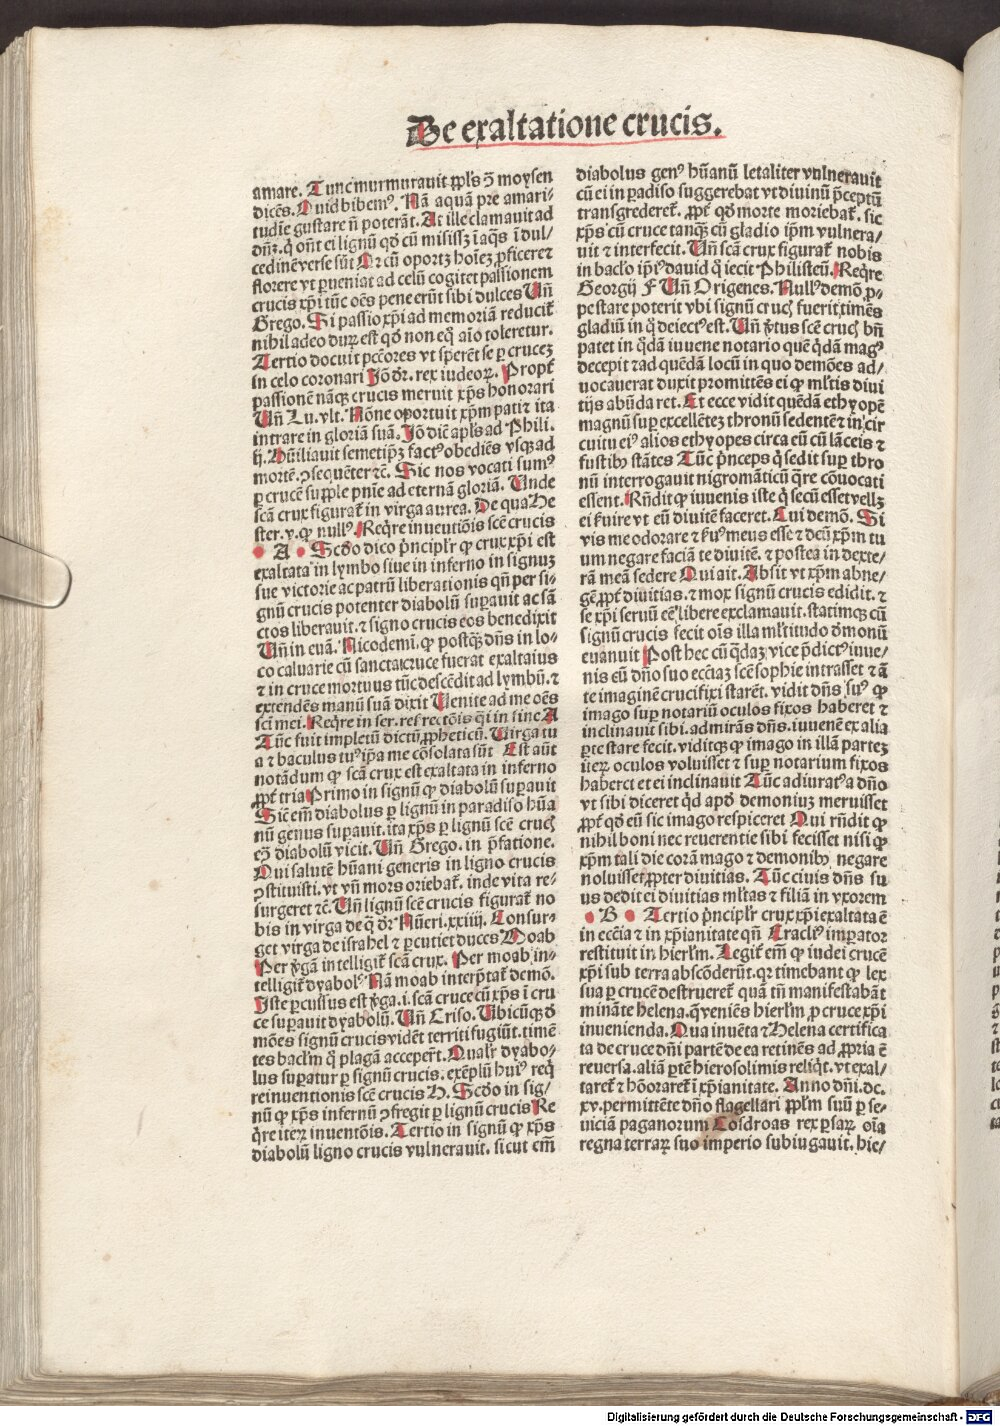 De exaltatione crucis.
amare. Tunc murmurauit ppl's ꝯ moysen
dicēs. Quid bibem⁹. Nā aquā pre amari-
tudīe gustare ñ poterāt. At ille clamauit ad
dn̄ꝫ. q̇ on̄t ei lignū qd̄ cū misissꝫ ī aq̄s ī dul/
cedinē verse sūt Or cū oportꝫ hoīeꝫ ꝓficere ⁊
florere vt ꝑueniat ad celū cogitet passionem
crucis xp̄i tūc oēs pene erūt sibi dulces Vn̄
Grego. Si passio xp̄i ad memoriā reducit̄
nihil adeo durꝫ est qd̄ non eq̄ aīo toleretur.
Tertio docuit pctōres vt sperēt se ꝑ cruceꝫ
in celo coronari Jō dr̄. rex iudeoꝝ. Propt̄
passionē nāqꝫ crucis meruit xp̄s honorari
Vn̄ Lu. vlt. Nōne oportuit xp̄m pati ⁊ ita
intrare in gloriā suā. Jō dic̄ apl's ad Phili.
ij. Hūiliauit semetip̄ꝫ fact⁹ obediēs vsqꝫ ad
mortē. ꝯsequēter ⁊c̄. Sic nos vocati sum⁹
ꝑ crucē supple pn̄ie ad eternā gloriā. Vnde
scā crux figurat̄ in virga aurea. De qua He
ster. v. ꝙ null⁹. Req̄re inuentiōis scē crucis
A Scdo dico p̄ncipl'r ꝙ crux xp̄i est
exaltata in lymbo siue in inferno in signuꝫ
sue victorie ac patrū liberationis qn̄ per si-
gnū crucis potenter diabolū suꝑauit ac sā
ctos liberauit. ⁊ signo crucis eos benedixit
Vn̄ in euā. Nicodemi. ꝙ postqꝫ dn̄s in lo-
co caluarie cū sancta cruce fuerat exaltatus
⁊ in cruce mortuus tūc descēdit ad lymbū. ⁊
extendēs manū suā dixit Venite ad me oēs
scti mei. Req̄re in ser. resrectōis q̇ī in fine A
Tūc fuit impletū dictū ꝓpheticū. Virga tu
a ⁊ baculus tu⁹ ip̄a me cōsolata sūt Est aūt
notādum ꝙ scā crux est exaltata in inferno
ꝓpt̄ tria Primo in signū ꝙ diabolū suꝑauit
Sic em̄ diabolus ꝑ lignū in paradiso hūa
nū genus suꝑauit. ita xp̄s ꝑ lignū scē crucꝭ
eꝫ diabolū vicit. Vn̄ Grego. in p̄fatione.
Qui salutē hūani generis in ligno crucis
ꝯstituisti. vt vn̄ mors oriebat̄. inde vita re-
surgeret ⁊c̄. Vn̄ lignū scē crucis figurat̄ no
bis in virga de q̄ dr̄ Nūeri. xxiiij. Consur-
get virga de israhel ⁊ ꝑcutiet duces Moab
Per v̄gā intelligit̄ scā crux. Per moab in-
telligit̄ dyabol⁹. Nā moab interp̄tat̄ demō.
Iste ꝑcussus est v̄ga. i. scā cruce cū xp̄s ī cru
ce suꝑauit dyabolū. Vn̄ Criso. Vbicūqꝫ d̄
mōes signū crucis vidēt territi fugiūt. timē
tes bacl'm q̄ plagā acceper̄t. Qual'r dyabo-
lus suꝑatur ꝑ signū crucis. exēplū hui⁹ req̄
reinuentionis scē crucis H. Scdo in sig/
nū ꝙ xp̄s infernū ꝯfregit ꝑ lignū crucis Re
q̄re iteꝝ inuentōis. Tertio in signū ꝙ xp̄s
diabolū ligno crucis vulnerauit. sicut em̄
diabolus gen⁹ hūanū letaliter vulnerauit
cū ei in ꝑadiso suggerebat vt diuinū p̄ceptū
transgrederet̄. ꝓpt̄ qd̄ morte moriebat̄. sic
xp̄s cū cruce tanqꝫ cū gladio ip̄m vulnera/
uit ⁊ interfecit. Vn̄ scā crux figurat̄ nobis
in bacl'o ip̄i⁹ dauid q̇ iecit Philisteū. Req̄re
Georgij F Vn̄ Origenes. Null⁹ demō ꝓ-
pe stare poterit vbi signū crucꝭ fuerit timēs
gladiū in q̇ deiect⁹ est. Vn̄ v̄tus scē crucꝭ bn̄
patet in q̇dā iuuene notario quē q̇dā mag⁹
decepit ⁊ ad quēdā locū in quo demōes ad/
uocauerat duxit promittēs ei ꝙ ml'tis diui
tijs abūdaret. Et ecce vidit quēdā ethyopē
magnū suꝑ excellēteꝫ thronū sedentē ⁊ in cir
cuitu ei⁹ alios ethyopes circa eū cū lāceis ⁊
fustibꝫ stātes Tūc p̄nceps q̇ sedit suꝑ thro
nū interrogauit nigromāticū q̄re cōuocati
essent. Rn̄dit ꝙ iuuenis iste q̇ secū esset vellꝫ
ei ẜuire vt eū diuitē faceret. Cui demō. Si
vis me odorare ⁊ ẜu⁹ meus esse ⁊ deū xp̄m tu
um negare faciā te diuitē. ⁊ postea in dexte-
rā meā sedere Qui ait. Absit vt xp̄m abne-
gē ꝓpt̄ diuitias. ⁊ mox signū crucis edidit. ⁊
se xp̄i seruū eē libere exclamauit. statimqꝫ cū
signū crucis fecit oīs illa ml'titudo d̄monū
euanuit Post hec cū q̇daꝫ vice p̄dict⁹ iuue/
nis eū dn̄o suo ecciaꝫ scē sophie intrasset ⁊ ā
te imaginē crucifixi starēt. vidit dn̄s su⁹ ꝙ
imago suꝑ notariū oculos fixos haberet ⁊
inclinauit sibi. admirās dn̄s. iuuenē ex alia
ꝑte stare fecit. viditqꝫ ꝙ imago in illā parteꝫ
iteꝝ oculos voluisset ⁊ suꝑ notarium fixos
haberet et ei inclinauit Tūc adiurat⁹ a dn̄o
vt sibi diceret qd̄ apd̄ demoniuꝫ meruisset
ꝓpt̄ qd̄ eū sic imago respiceret Qui rn̄dit ꝙ
nihil boni nec reuerentie sibi fecisset nisi ꝙ
xp̄m tali die corā mago ⁊ demonibꝫ negare
noluisset ꝓpter diuitias. Tūc ciuis dn̄s su
us dedit ei diuitias ml'tas ⁊ filiā in vxorem
B Tertio p̄ncipl'r crux xp̄i exaltata ē
in ecc̄ia ⁊ in xp̄ianitate qn̄ Eracli⁹ imꝑator
restituit in hierl'm. Legit̄ em̄ ꝙ iudei crucē
xp̄i sub terra abscōderūt. qꝛ timebant ꝙ lex
sua ꝑ crucē destrueret̄ quā tn̄ manifestabāt
mināte helena. q̄ veniēs hierl'm ꝓ cruce xp̄i
inuenienda. Qua inuēta ⁊ Helena certifica
ta de cruce dn̄i partē de ea retinēs ad ꝓpria ē
reuersa. aliā ꝑtē hierosolimis reliq̇t. vt exal/
taret̄ ⁊ hōoraret̄ ī xp̄ianitate. Anno dn̄i. dc.
xv. permittēte dn̄o flagellari ppl'm suū ꝑ se/
uiciā paganorum Cosdroas rex ꝑsaꝝ oīa
regna terraꝝ suo imperio subiugauit. hie/
Digitalisierung gefördert durch die Deutsche Forschungsgemeinschaft - DFG